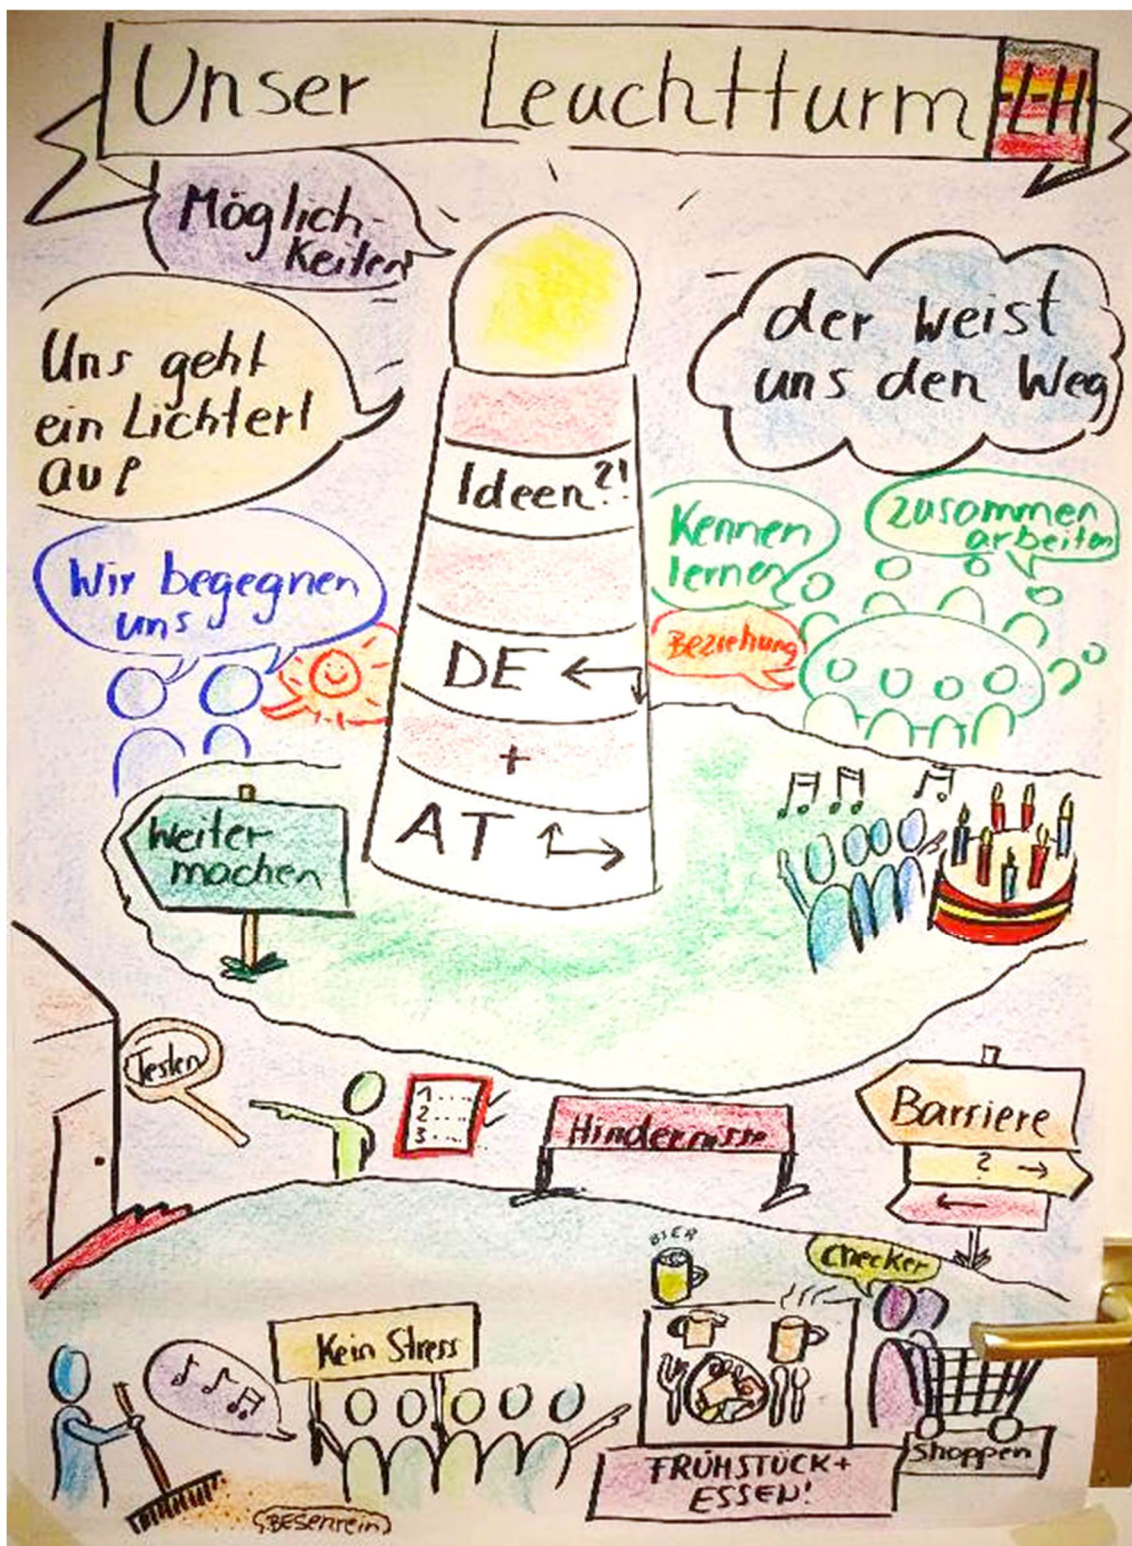 Unser Leuchtturm LH
Möglich-
Keiten
Uns geht
ein Lichterl
auf
der weist
uns den Weg
Ideen?!
Kennen
lernen
Zusammen
arbeiten
Wir begegnen
uns
Beziehung
DE ←
+
AT →
Weiter
machen
Testen
1....
2....
3....
Hindernisse
Barriere
? →
←
BIER
Checker
Kein Stress
FRÜHSTÜCK+
ESSEN!
Shoppen
BESENREIN